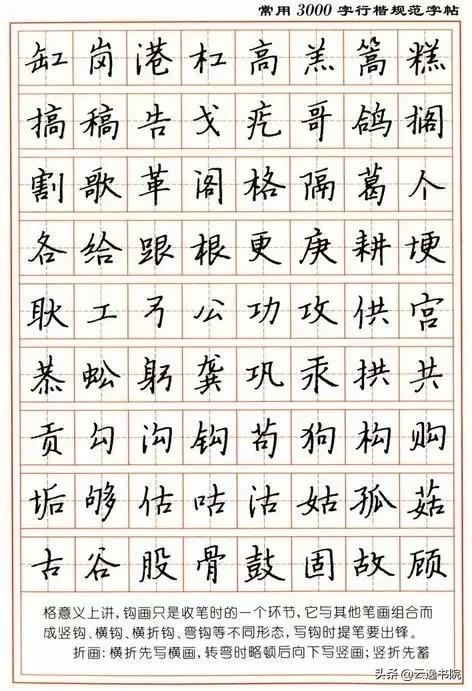 常用3000字行楷规范字帖
缸岗港杠高羔篙糕
搞稿告戈疙哥鸽搁
割歌革阁格隔葛个
各给跟根更庚耕埂
耿工弓公功攻供宫
恭蚣躬龚巩汞拱共
贡勾沟钩苟狗构购
垢够估咕沽姑孤菇
古谷股骨鼓固故顾
格意义上讲,钩画只是收笔时的一个环节,它与其他笔画组合而
成竖钩、横钩、横折钩、弯钩等不同形态,写钩时提笔要出锋。
折画:横折先写横画,转弯时略顿后向下写竖画;竖折先蓄
头条@云逸书院